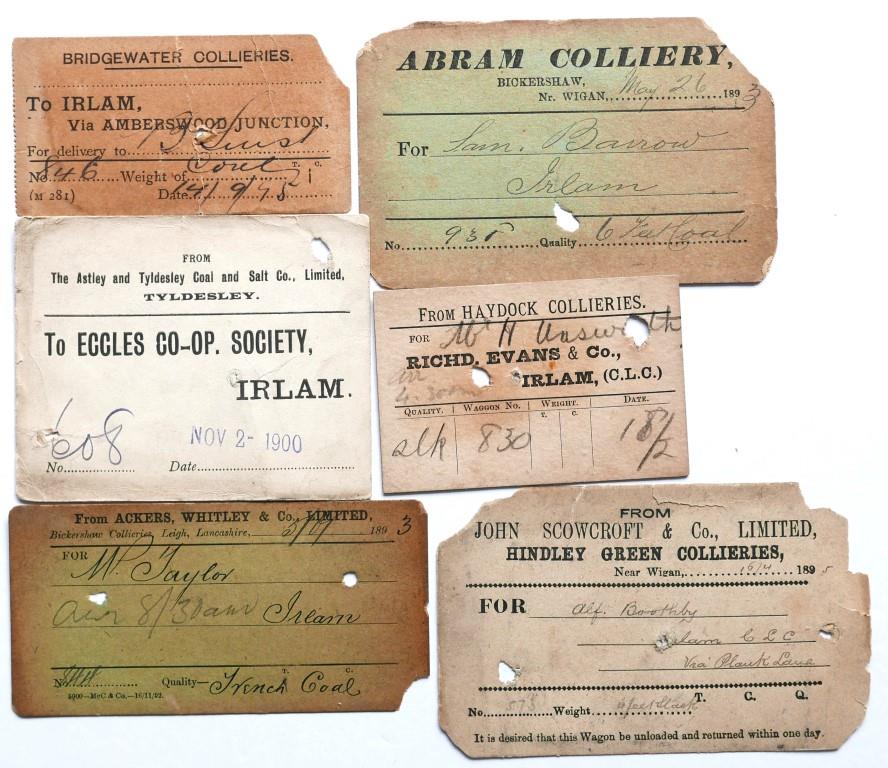 BRIDGEWATER COLLIERIES.
To IRLAM,
Via AMBERSWOOD JUNCTION,
For delivery to
Coal T. C.
No. 846 Weight of
(M 281) Date 14/9/75
ABRAM COLLIERY,
BICKERSHAW,
Nr. WIGAN, May 26 1893
For Sam. Barrow
Irlam
No. 935 Quality 6 Feet Coal
FROM
The Astley and Tyldesley Coal and Salt Co., Limited,
TYLDESLEY.
To ECCLES CO-OP. SOCIETY,
IRLAM.
608 NOV 2- 1900
No. Date
From HAYDOCK COLLIERIES.
FOR Mr H Unsworth
RICHD. EVANS & Co.,
IRLAM, (C.L.C.)
QUALITY. WAGGON No. WEIGHT. DATE.
T. C.
slk 830 18/2
From ACKERS, WHITLEY & Co., LIMITED,
Bickershaw Collieries, Leigh, Lancashire, 1893
FOR
Mr. Taylor
8/30am Irlam
T. C.
No. Quality— Trench Coal
5000—McC & Co.—16/11/92.
FROM
JOHN SCOWCROFT & Co., LIMITED,
HINDLEY GREEN COLLIERIES,
Near Wigan, 16/4 1895
FOR Alf. Boothby
Irlam C L C
Via Plank Lane
T. C. Q.
No. 575 Weight
It is desired that this Wagon be unloaded and returned within one day.